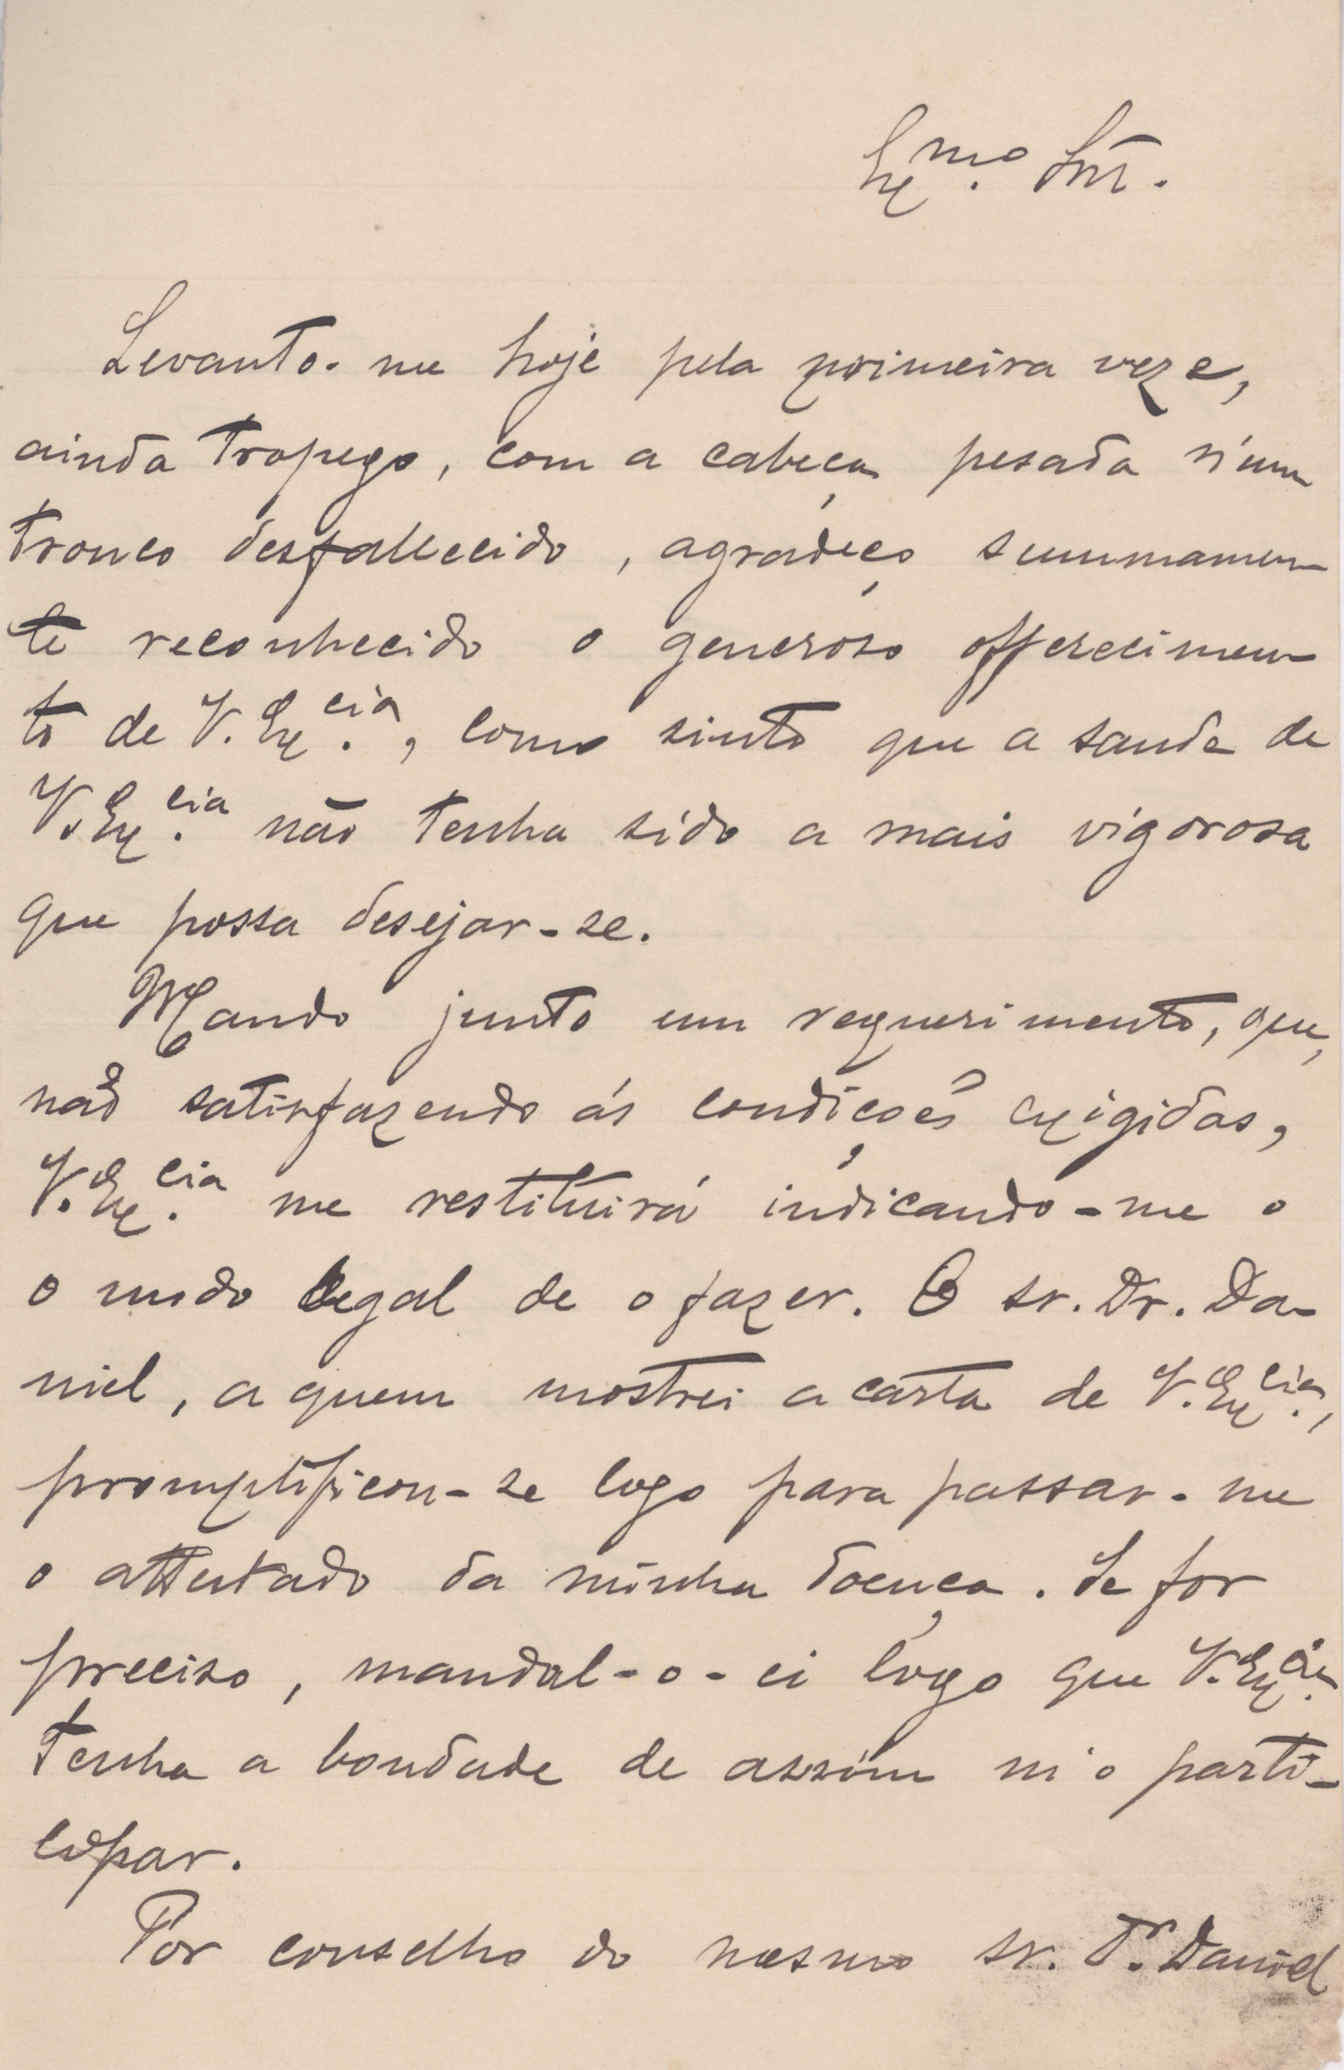 Ex.mo Snr.
Levanto-me hoje pela primeira veze,
ainda tropego, com a cabeça pesada n'um
tronco desfallecido, agradeço summamen-
te reconhecido o generoso offerecimen-
to de V. Ex.cia, como sinto que a saude de
V. Ex.cia não tenha sido a mais vigorosa
que possa desejar-se.
Mando junto um requerimento, que,
não satisfazendo ás condições exigidas,
V. Ex.cia me restituirá indicando-me o
o modo legal de o fazer. O sr. Dr. Da-
niel, a quem mostrei a carta de V. Ex.cia,
promptificou-se logo para passar-me
o attestado da minha doença. Se for
preciso, mandal-o-ei logo que V. Ex.cia
tenha a bondade de assim m'o parti-
cipar.
Por conselho do mesmo sr. Dr. Daniel